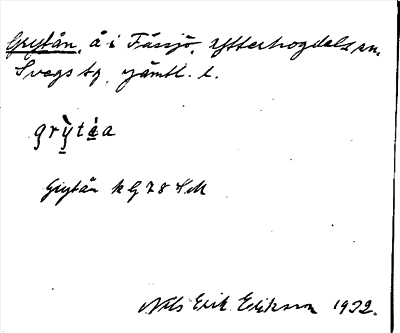 Grytån, å i Fåssjö, Ytterhogdals sn.
Svegs tg, Jämtl. l.
grỳtåa
Grytån kG 78 HM
Nils Erik Eriksson 1932.